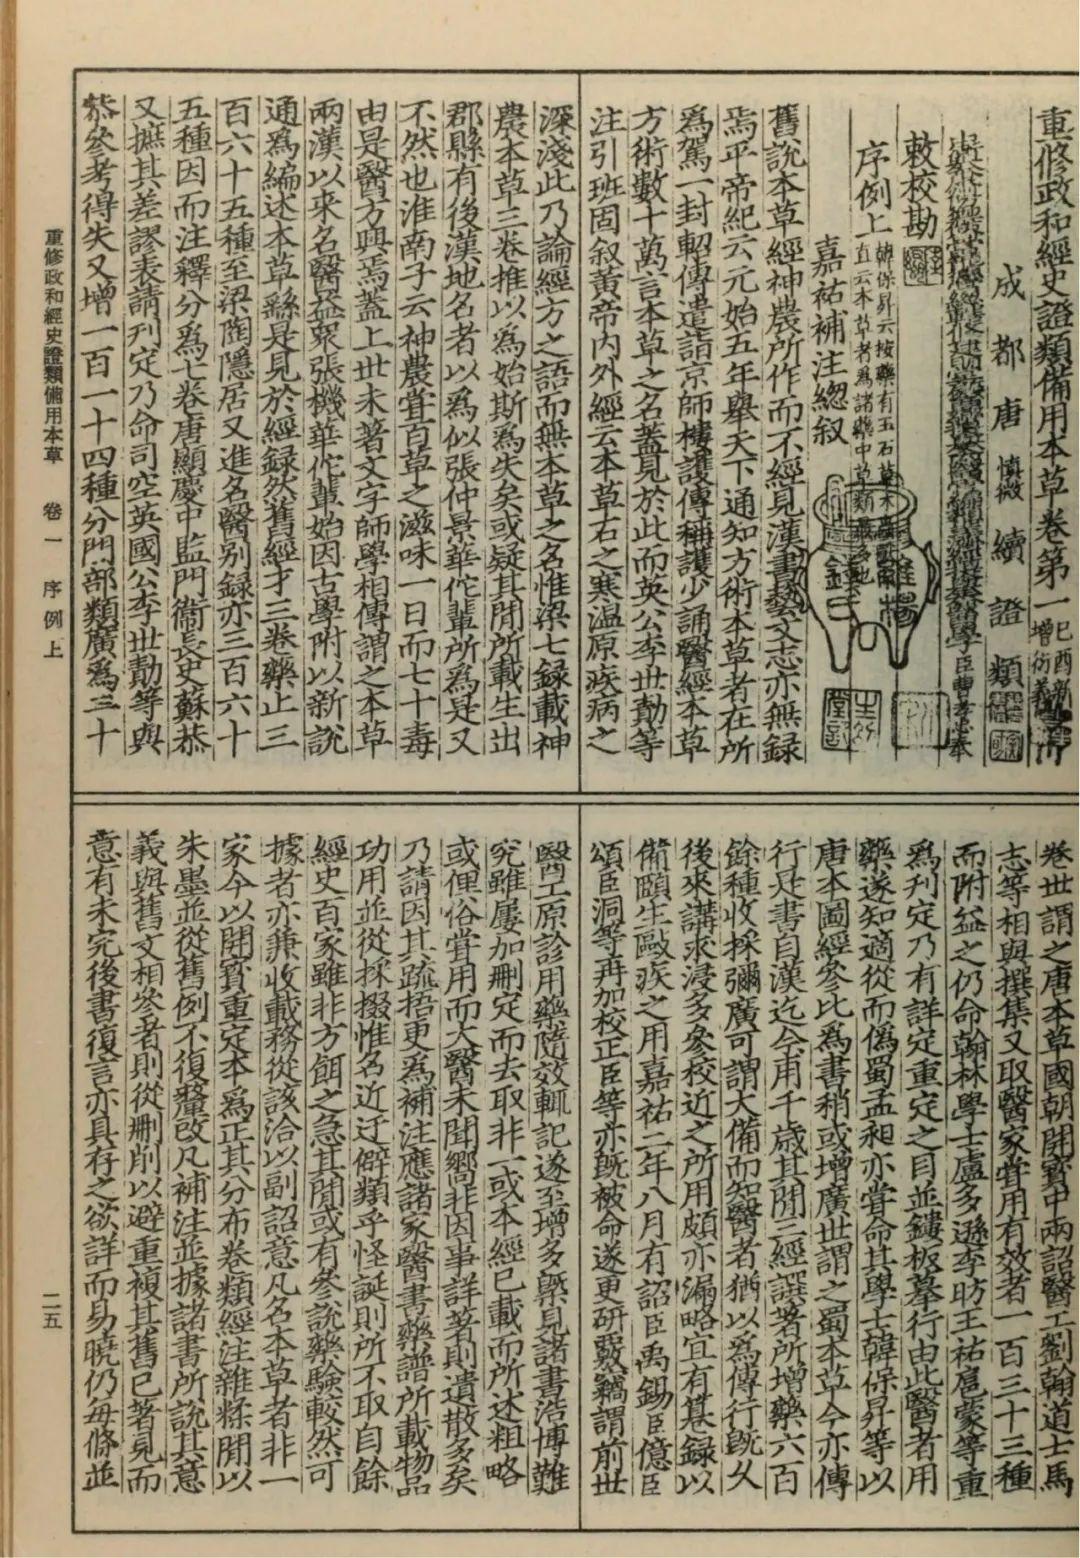 重修政和經史證類備用本草卷第一 己酉新增衍義
成都唐慎微續證類
臣曹孝忠奉
敕校勘
序例上 韓保昇云按藥有玉石草木
直云本草者為諸藥中草類最多也
嘉祐補注總叙
舊說本草經神農所作而不經見漢書藝文志亦無録
焉平帝紀云元始五年舉天下通知方術本草者在所
為駕一封軺傳遣詣京師樓護傳稱護少誦醫經本草
方術數十萬言本草之名蓋見於此而英公李世勣等
注引班固叙黃帝內外經云本草石之寒温原疾病之
深淺此乃論經方之語而無本草之名惟梁七録載神
農本草三卷推以為始斯為失矣或疑其閒所載生出
郡縣有後漢地名者以為似張仲景華佗輩所為是又
不然也淮南子云神農甞百草之滋味一日而七十毒
由是醫方興焉蓋上世未著文字師學相傳謂之本草
兩漢以来名醫益眾張機華佗輩始因古學附以新說
通為編述本草繇是見於經録然舊經才三卷藥止三
百六十五種至梁陶隱居又進名醫别録亦三百六十
五種因而注釋分為七卷唐顯慶中監門衞長史蘇恭
又摭其差謬表請刊定乃命司空英國公李世勣等與
恭參考得失又增一百一十四種分門部類廣為二十
卷世謂之唐本草國朝開寶中兩詔醫工劉翰道士馬
志等相與撰集又取醫家甞用有效者一百三十三種
而附益之仍命翰林學士盧多遜李昉王祐扈蒙等重
為刊定乃有詳定重定之目並鏤板摹行由此醫者用
藥遂知適從而偽蜀孟昶亦甞命其學士韓保昇等以
唐本圖經參比為書稍或增廣世謂之蜀本草今亦傳
行是書自漢迄今甫千歲其閒三經譔著所增藥六百
餘種收採彌廣可謂大備而知醫者猶以為傳行既久
後來講求浸多參校近之所用頗亦漏略宜有纂録以
備頤生毆疾之用嘉祐二年八月有詔臣禹錫臣億臣
頌臣洞等再加校正臣等亦既被命遂更研覈竊謂前世
醫工原診用藥隨效輒記遂至增多槩見諸書浩博難
究雖屢加刪定而去取非一或本經已載而所述粗略
或俚俗甞用而大醫未聞嚮非因事詳著則遺散多矣
乃請因其疏捂更為補注應諸家醫書藥譜所載物品
功用並從採掇惟名近迂僻類乎怪誕則所不取自餘
經史百家雖非方餌之急其閒或有參說藥驗較然可
據者亦兼收載務從該洽以副詔意凡名本草者非一
家今以開寶重定本為正其分布卷類經注雜糅閒以
朱墨並從舊例不復釐改凡補注並據諸書所說其意
義與舊文相參者則從刪削以避重複其舊已著見而
意有未完後書復言亦具存之欲詳而易曉仍每條並
重修政和經史證類備用本草 卷一 序例上
二五